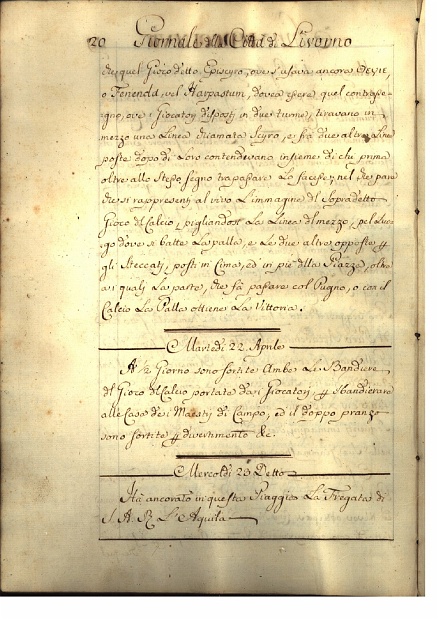 20 Giornale della Città di Livorno
che quel Gioco detto Episcyro, ove s'usava ancora
o Fenenda, vel Harpastum, dovea essere quel contrase-
gno, ove i Giocatorj disposti in due turme, tiravano in
mezzo una Linea chiamata Scyro, e frà due altre Linee
poste dopo di Loro contendevano insieme di chi prima
oltre allo stesso segno trapassare La facesse; nel che pare
che si rappresentj al vivo L'immagine del Sopradetto
Gioco del Calcio, pigliandosi La Linea di mezzo, pel Luo-
go dove si batte La palla, e Le due altre opposte
gli Steccatj, posti in Cima, ed in piè della Piazza, oltre
a i qualj La parte, che fà passare col Pugno, o con il
Calcio La Palla ottiene La Vittoria.
Martedì 22 Aprile
A ½ Giorno sono sortite Ambe Le Bandiere
del Gioco del Calcio portate dai Giocatorj sbandierare
alle Case de i Maestrj di Campo, ed il doppo pranzo
sono sortite divertimento &c.
Mercoldì 23 Detto
Hà ancorato in questa Piaggia La Fregata di
S. A. R. L'Aquila